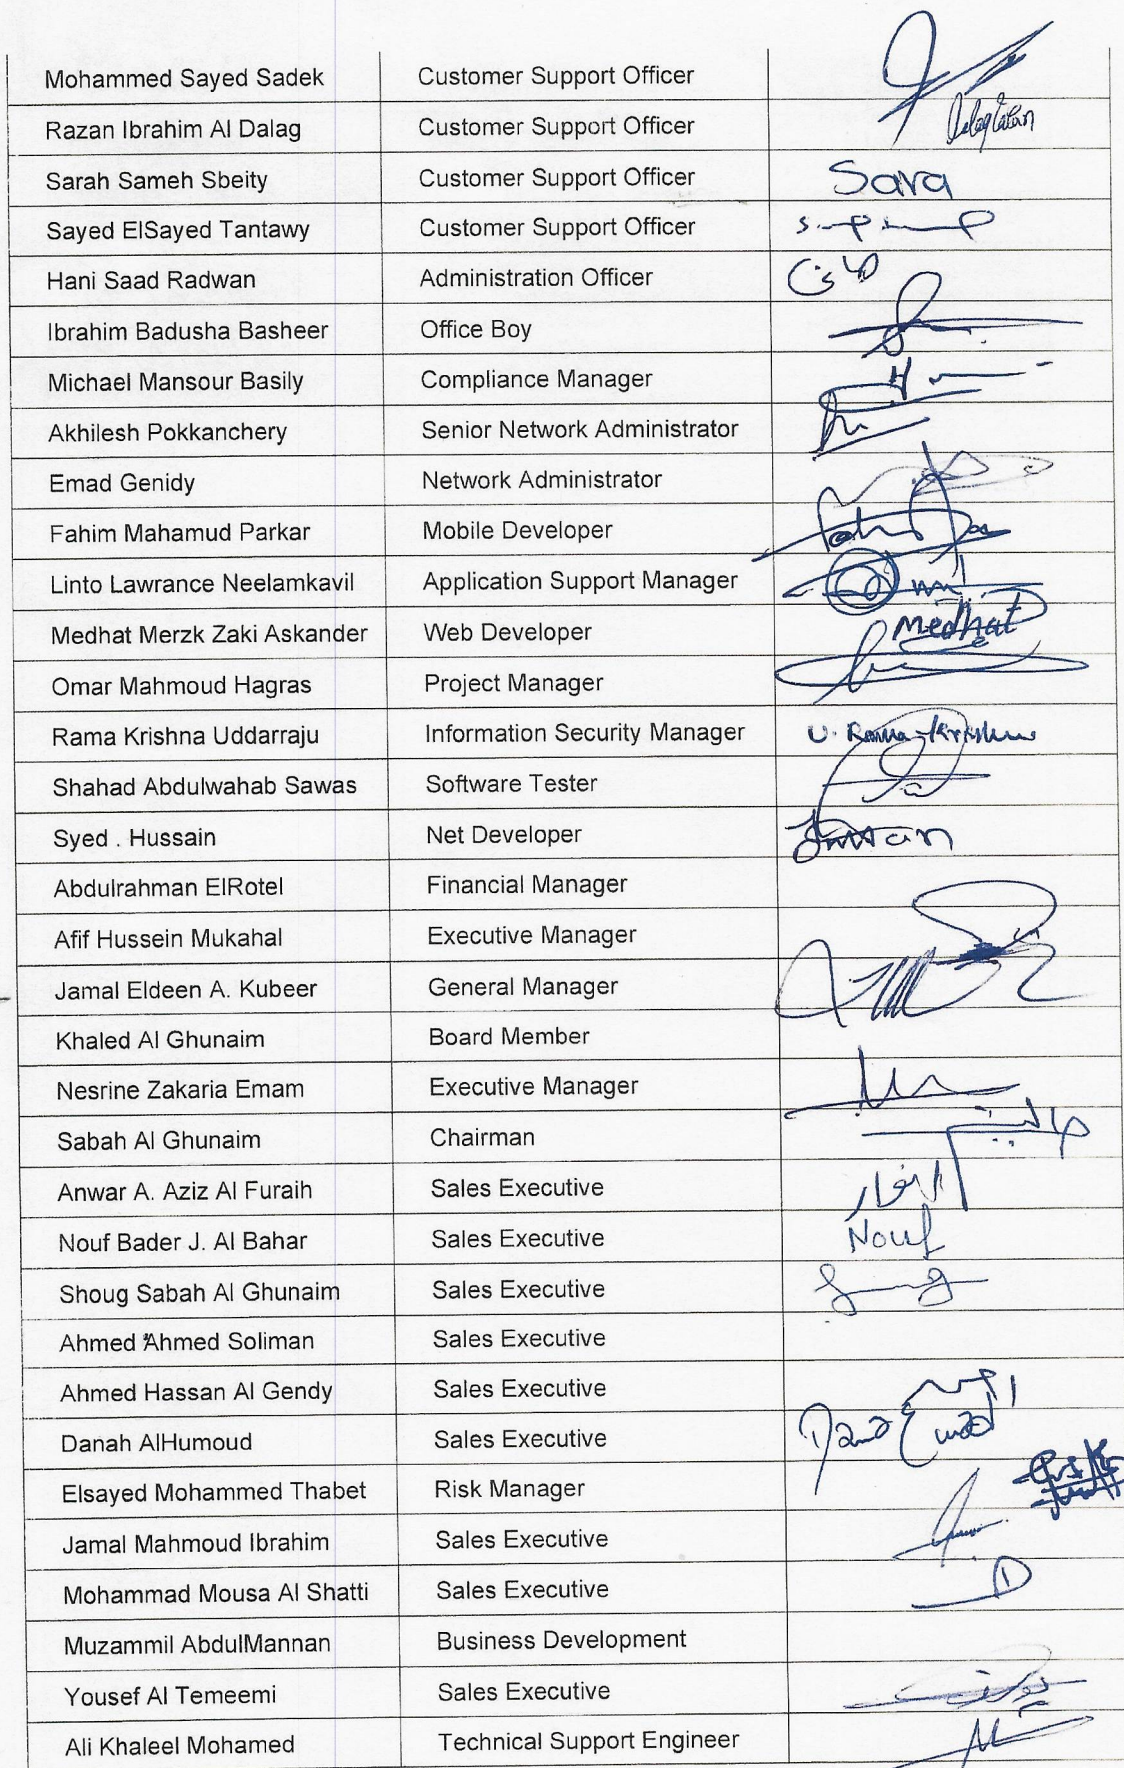 Mohammed Sayed Sadek Customer Support Officer
Razan Ibrahim Al Dalag Customer Support Officer
Sarah Sameh Sbeity Customer Support Officer Sara
Sayed ElSayed Tantawy Customer Support Officer
Hani Saad Radwan Administration Officer
Ibrahim Badusha Basheer Office Boy
Michael Mansour Basily Compliance Manager
Akhilesh Pokkanchery Senior Network Administrator
Emad Genidy Network Administrator
Fahim Mahamud Parkar Mobile Developer
Linto Lawrance Neelamkavil Application Support Manager
Medhat Merzk Zaki Askander Web Developer Medhat
Omar Mahmoud Hagras Project Manager
Rama Krishna Uddarraju Information Security Manager U. Rama Krishna
Shahad Abdulwahab Sawas Software Tester
Syed . Hussain Net Developer
Abdulrahman ElRotel Financial Manager
Afif Hussein Mukahal Executive Manager
Jamal Eldeen A. Kubeer General Manager
Khaled Al Ghunaim Board Member
Nesrine Zakaria Emam Executive Manager
Sabah Al Ghunaim Chairman
Anwar A. Aziz Al Furaih Sales Executive
Nouf Bader J. Al Bahar Sales Executive Nouf
Shoug Sabah Al Ghunaim Sales Executive
Ahmed Ahmed Soliman Sales Executive
Ahmed Hassan Al Gendy Sales Executive
Danah AlHumoud Sales Executive
Elsayed Mohammed Thabet Risk Manager
Jamal Mahmoud Ibrahim Sales Executive
Mohammad Mousa Al Shatti Sales Executive
Muzammil AbdulMannan Business Development
Yousef Al Temeemi Sales Executive
Ali Khaleel Mohamed Technical Support Engineer